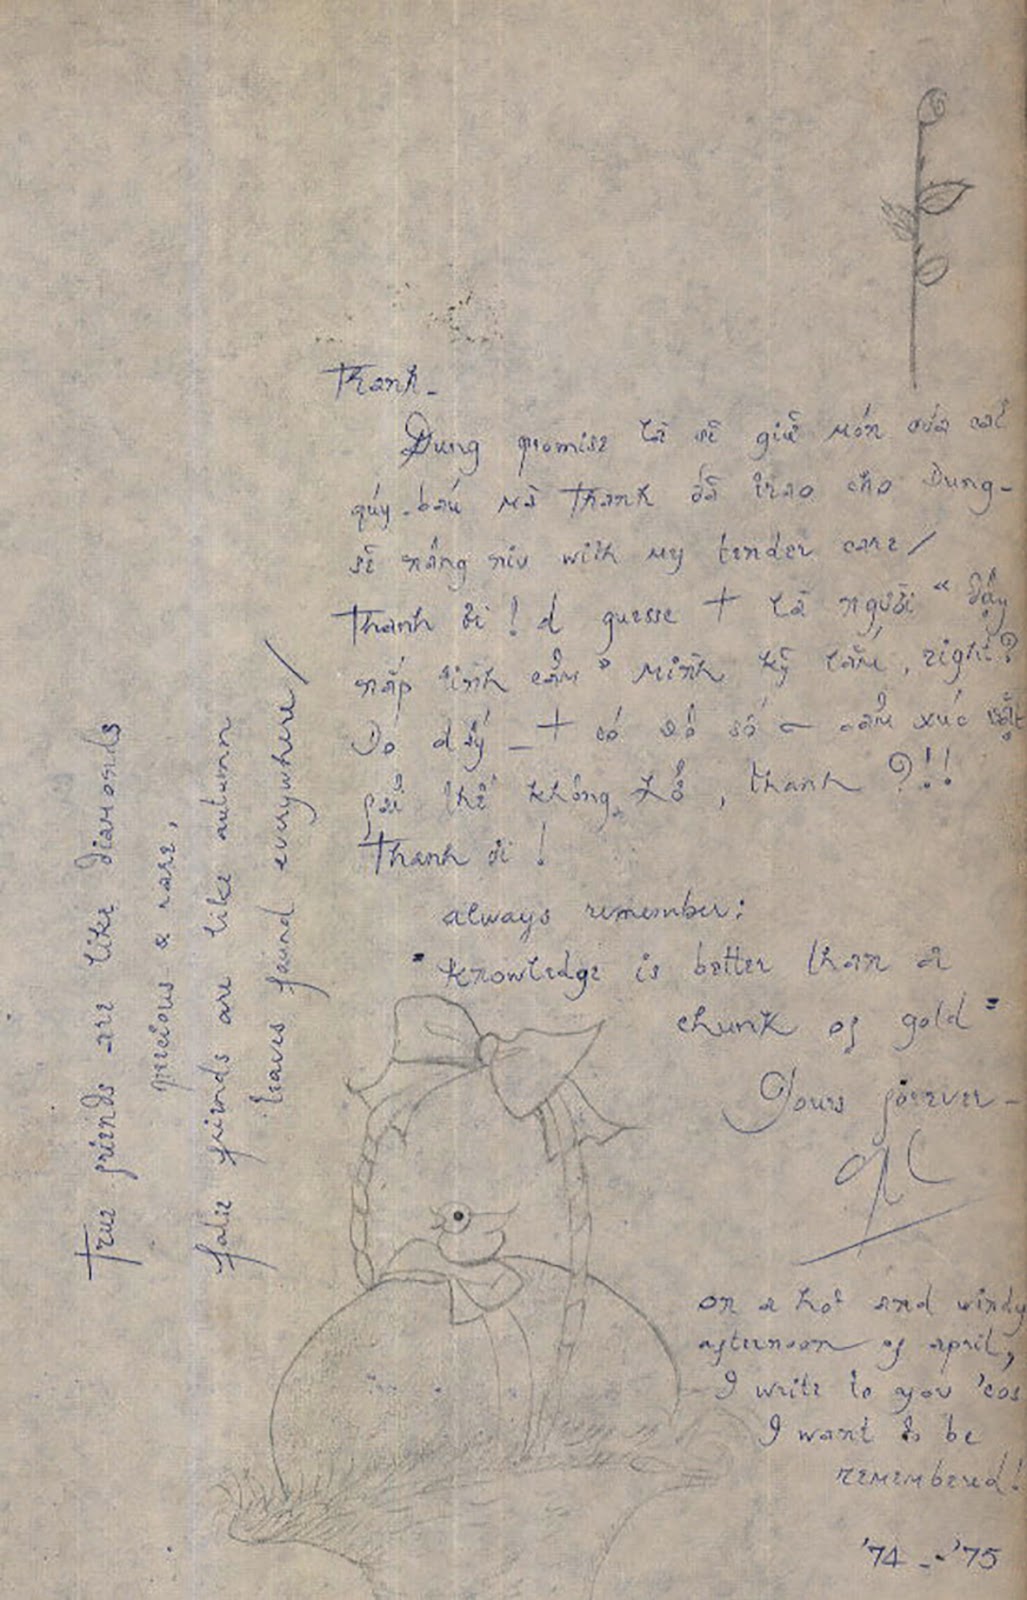 Thanh -
Dung promise là sẽ giữ món quà rất
quý-báu mà Thanh đã trao cho Dung -
sẽ nâng niu with my tender care/
Thanh ơi! I guess T là người “đầy
ắp tình cảm” mình kỹ lắm, right?
Do đấy - T có số cảm xúc
thế không, Thanh?!!
Thanh ơi!
always remember:
"knowledge is better than a
chunk of gold"
Yours forever -
on a hot and windy
afternoon of april,
I write to you 'cos
I want to be
remembered!
'74 - '75
True friends are like diamonds
precious & rare,
false friends are like autumn
leaves found everywhere/